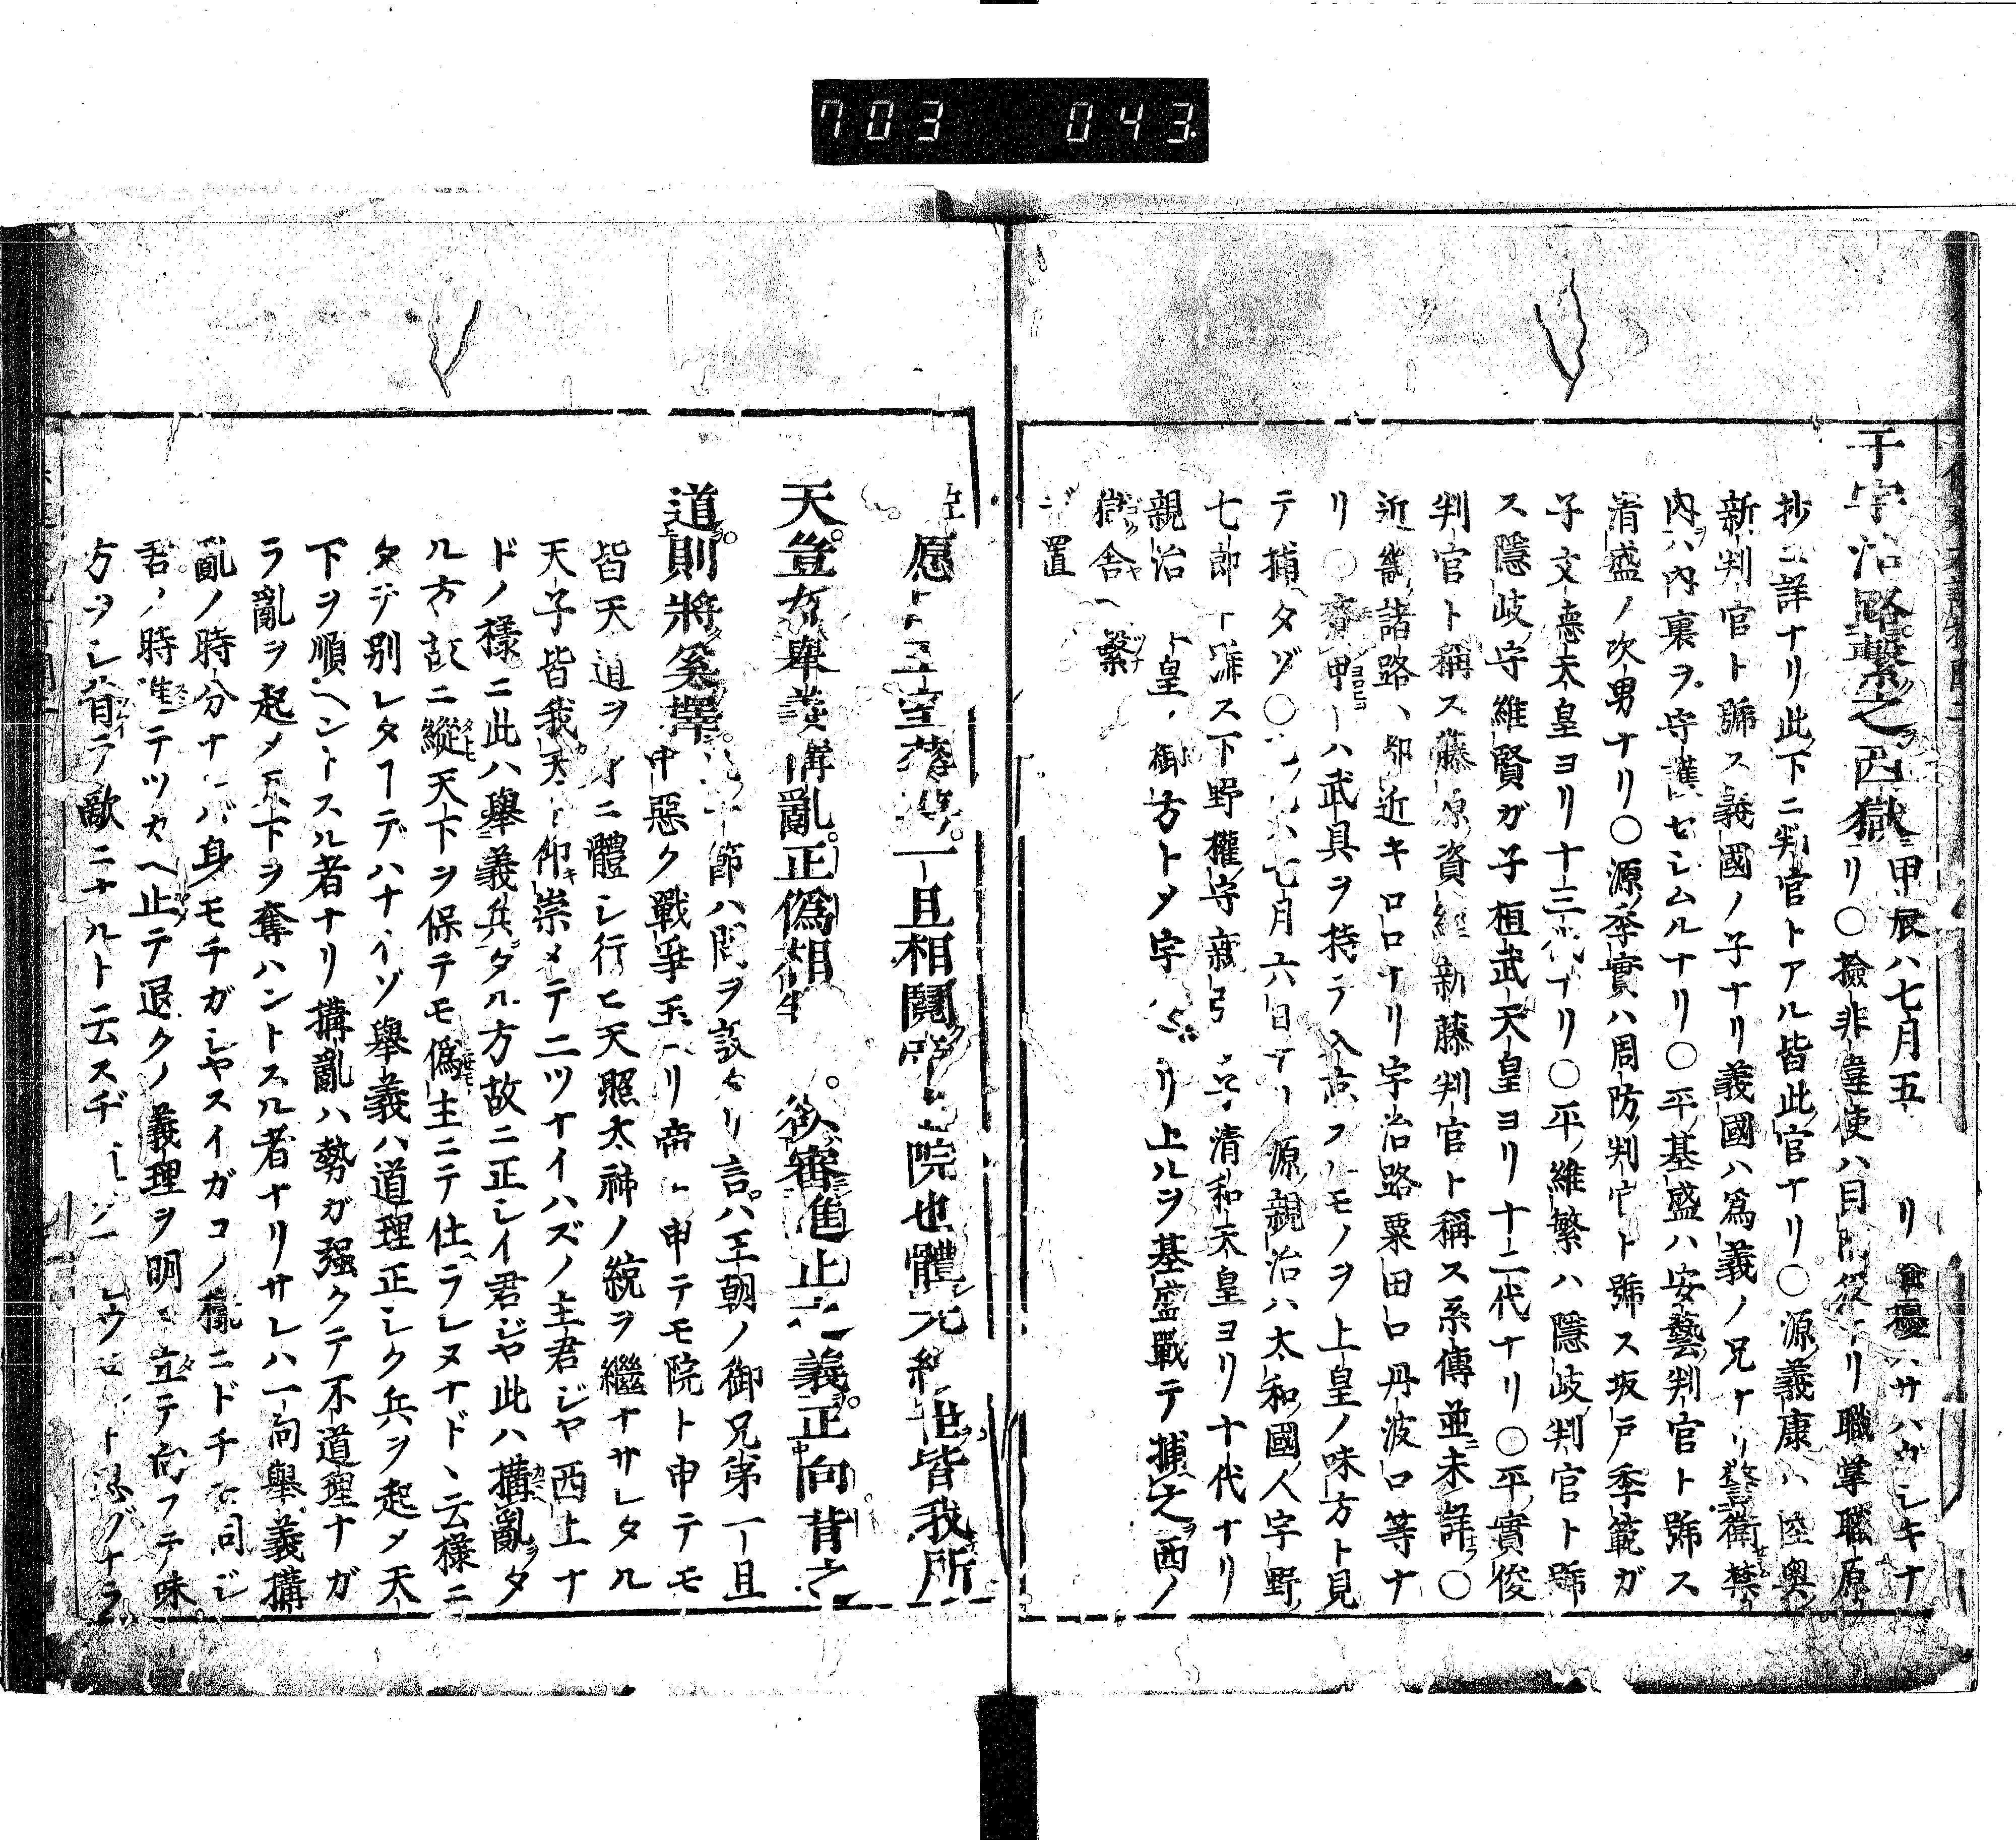 703 043
于宇治路繫之西獄
甲辰ハ七月五 リ 擾ハサハガシキナ
リ○撿非違使ハ目 リ職掌職原
抄ニ詳ナリ此下ニ判官トアル皆此官ナリ○源義康ハ陸奥
新判官ト號ス義國ノ子ナリ義國ハ爲義ノ兄ナリ警衛禁
内ハ內裏ヲ守護セシムルナリ○平基盛ハ安藝判官ト號ス
清盛ノ次男ナリ○源季實ハ周防判官ト號ス坂戸季範ガ
子文德天皇ヨリ十三代ナリ○平維繁ハ隱岐判官ト號
ス隱岐守維賢ガ子桓武天皇ヨリ十二代ナリ○平實俊
判官ト稱ス藤原資經新藤判官ト稱ス系傳並未詳○
近畿諸路、却近キロロナリ宇治路粟田口丹波口等ナ
リ○齎甲ーハ武具ヲ持テ入京スルモノヲ上皇ノ味方ト見
テ捕タゾ○ 七月六日ナリ源親治ハ大和國人宇野
七郎ト號ス下野權守 清和天皇ヨリ十代ナリ
親治 上皇ノ御方トメ宇 リ上ルヲ基盛戰テ捕之西ノ
獄舎ヘ繫
ギ置
愿 王室 一旦相鬩 院也體元 皆我所
天豈有舉義構亂正僞相 欲審進止之義正向背之
道則將奚擇
節ハ問ヲ設タリ言ハ王朝ノ御兄弟一旦
中惡ク戰爭玉ヘリ帝ト申テモ院ト申テモ
皆天道ヲ ニ體シ行ヒ天照太神ノ統ヲ繼ナサレタル
天子皆我天ト仰崇メテ二ツナイハズノ主君ジヤ西上ナ
ドノ樣ニ此ハ舉義兵タル方故ニ正シイ君ジヤ此ハ構亂タ
ル方故ニ縱天下ヲ保テモ僞主ニテ仕ヘラレヌナド、云樣ニ
タテ別レターデハナイゾ舉義ハ道理正シク兵ヲ起メ天
下ヲ順ヘントスル者ナリ構亂ハ勢ガ强クテ不道理ナガ
ラ亂ヲ起メ天下ヲ奪ハントスル者ナリサレハ一向舉義構
亂ノ時分ナレバ身モチガシヤスイガコノ樣ニドチモ同ジ
君ノ時進テツカヘ止テ退クノ義理ヲ明ニ立テ向フテ味
方ヲシ背テ敵ニナルト云スヂ